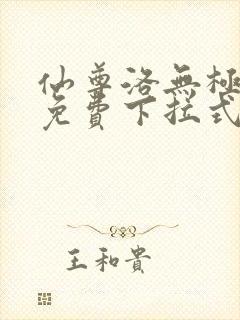 仙尊洛無極
免費下拉式
王和貴